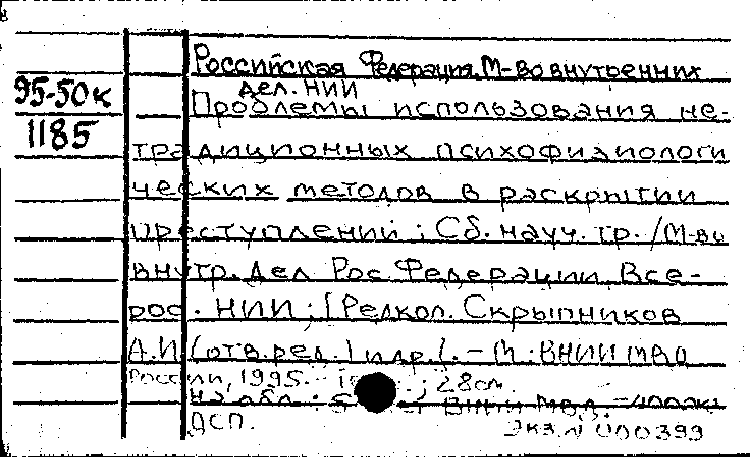 Российская Федерация. М-во внутренних
дел. НИИ
95-50к
1185
Проблемы использования не-
традиционных психофизиологи
ческих методов в раскрытии
преступлений: Сб. науч. тр. / М-во
внутр. дел Рос. Федерации, Все-
рос. НИИ; [Редкол. Скрыпников
А.И. (отв. ред.) и др.]. - М.: ВНИИ МВД
России, 1995. ; 28 см.
На обл.: ВНИИ МВД.
ДСП.
Экз. N 000399